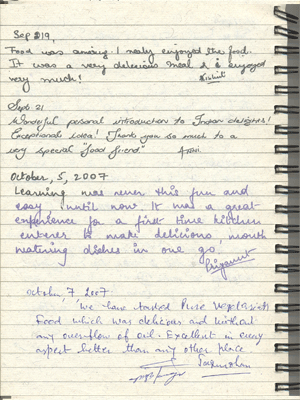 Sep 219,
Food was amazing. I really enjoyed the food.
It was a very delecious meal & i enjoyed
very much!
Sept 21
Wonderful personal introduction to Indian delights!
Exceptional idea! Thank you so much to a
very special "food friend"
October, 5, 2007
Learning was never this fun and
easy until now It was a great
experience for a first time kitchen
enterer to make delicious, mouth
watering dishes in one go!
Priyanut
october 7 2007
We have tasted Pure Vegetarian
Food which was delicious and without
any overflow of oil. Excellent in every
aspect better than any other place